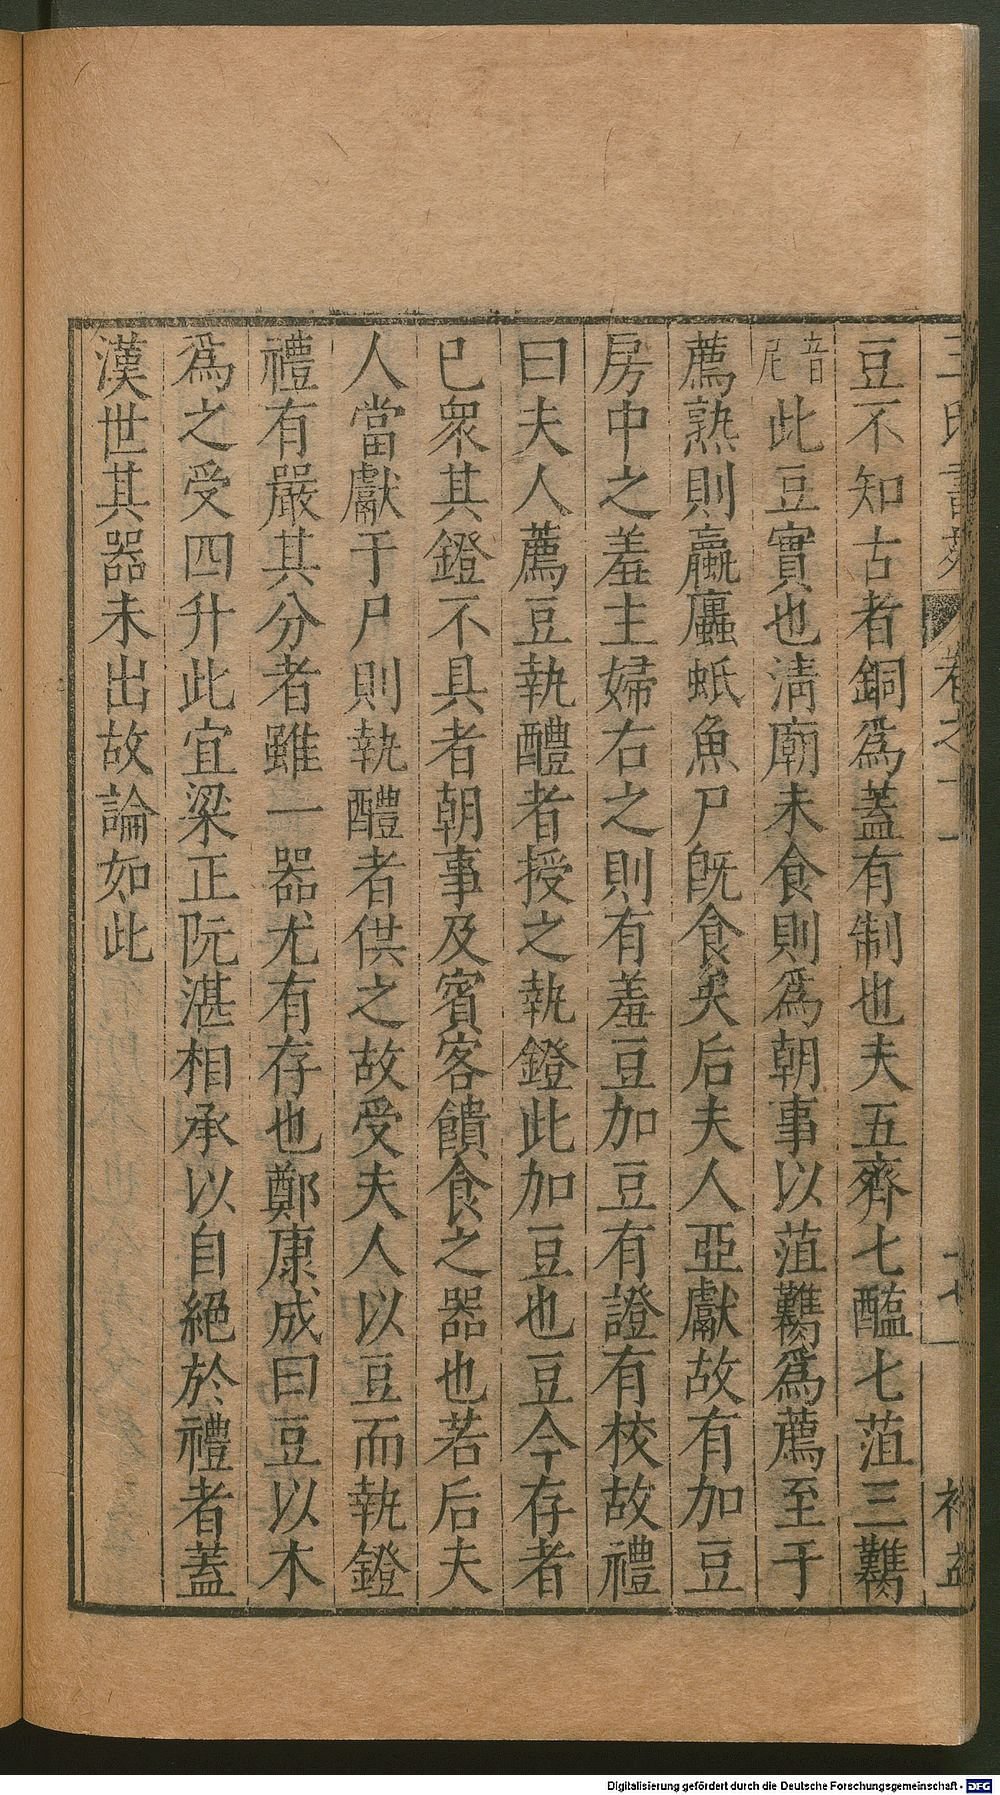 王氏書苑 卷之
豆不知古者銅爲蓋有制也夫五齊七醢七菹三臡
音尼此豆實也淸廟未食則爲朝事以菹臡爲薦至于
薦熟則蠃蠯蚳魚尸旣食矣后夫人亞獻故有加豆
房中之羞主婦右之則有羞豆加豆有證有校故禮
曰夫人薦豆執醴者授之執鐙此加豆也豆今存者
已衆其鐙不具者朝事及賓客饋食之器也若后夫
人當獻于尸則執醴者供之故受夫人以豆而執鐙
禮有嚴其分者雖一器尤有存也鄭康成曰豆以木
爲之受四升此宜梁正阮湛相承以自絕於禮者蓋
漢世其器未出故論如此
Digitalisierung gefördert durch die Deutsche Forschungsgemeinschaft - DFG